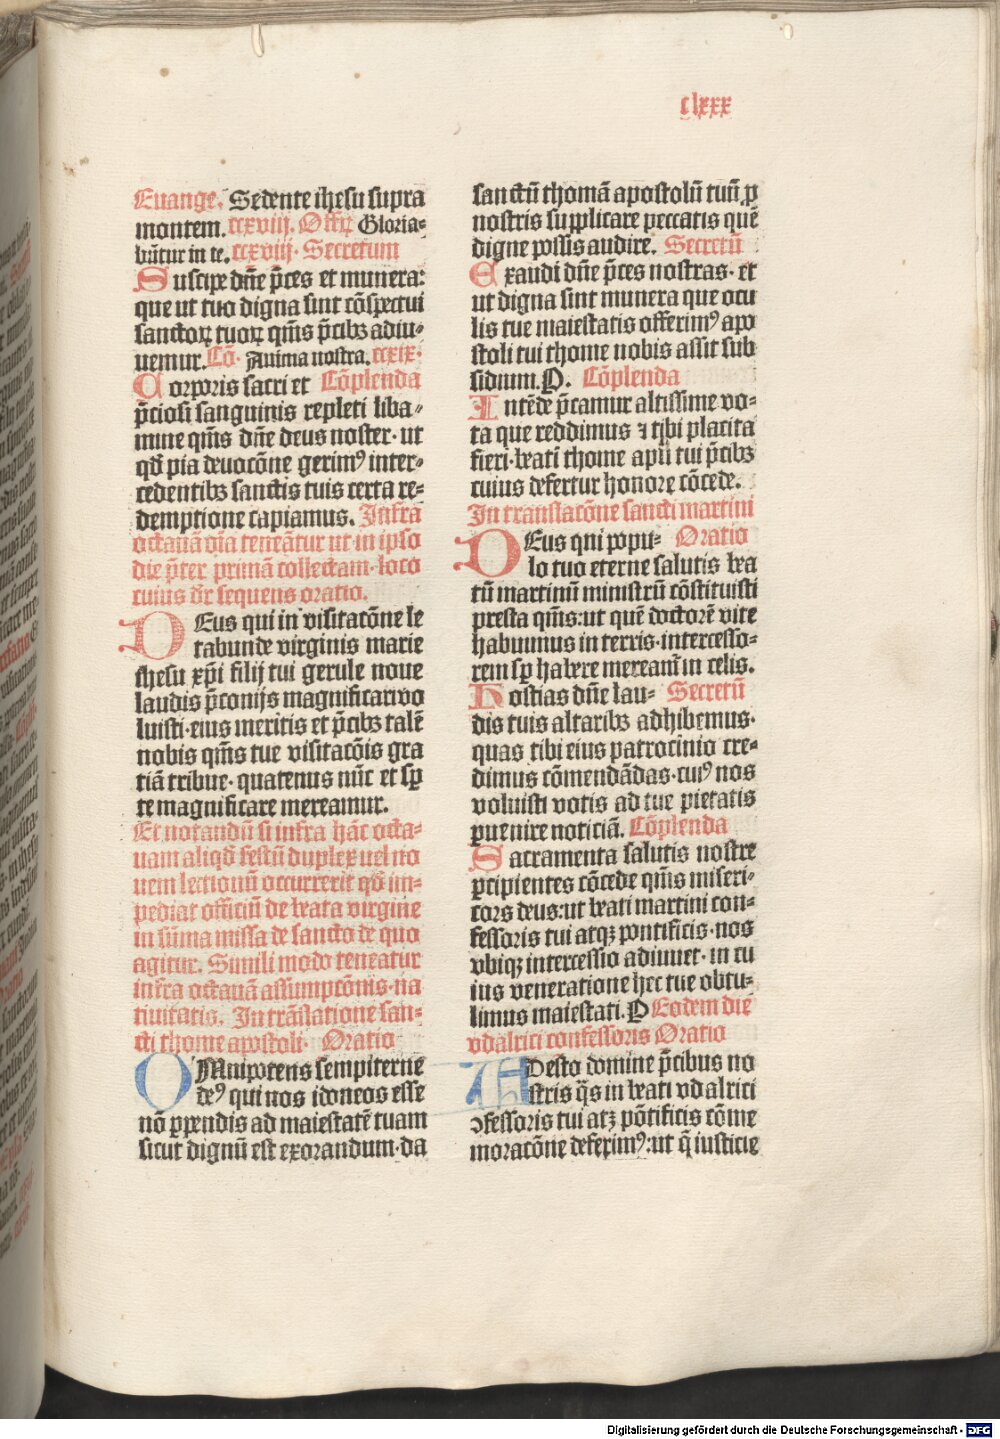 clxxx
Euange. Sedente ihesu supra
montem. ccxviij. Offꝝ Gloria⸗
bũtur in te. ccxviij. Secretum
Suscipe dñe p̃ces et munera:
que ut tuo digna sint cõspectui
sanctoꝝ tuoꝝ qm̃s p̃cibꝫ adiu⸗
uemur. Cõ. Anima nostra. ccxix.
Corporis sacri et Cõplenda
p̃ciosi sanguinis repleti liba⸗
mine qm̃s dñe deus noster· ut
qđ pia deuocõne gerimꝰ inter⸗
cedentibꝫ sanctis tuis certa re⸗
demptione capiamus. Infra
octauã oĩa teneãtur ut in ipso
die p̃ter primã collectam· loco
cuius dr̃ sequens oratio.
DEus qui in visitacõne le
tabunde virginis marie
ihesu xp̃i filij tui gerule noue
laudis p̃conijs magnificari vo
luisti· eius meritis et p̃cibꝫ talẽ
nobis qm̃s tue visitacõis gra
tiã tribue· quatenus nũc et sꝑ
te magnificare mereamur.
Et notandũ si infra hãc octa⸗
uam aliqđ festũ duplex uel no
uem lectionũ occurrerit qđ im⸗
pediat officiũ de beata virgine
in sũma missa de sancto de quo
agitur. Simili modo teneatur
infra octauã assumpcõnis· na
tiuitatis. In trãslatione san⸗
cti thome apostoli· Oratio
OMnipotens sempiterne
deꝰ qui nos idoneos esse
nõ ꝑpendis ad maiestatẽ tuam
sicut dignũ est exorandum· da
sanctũ thomã apostolũ tuũ ꝓ
nostris supplicare peccatis quẽ
digne possis audire. Secretũ
Exaudi dñe p̃ces nostras· et
ut digna sint munera que ocu
lis tue maiestatis offerimꝰ apo
stoli tui thome nobis assit sub
sidium. P. Cõplenda
Intẽde p̃camur altissime vo⸗
ta que reddimus ⁊ tibi placita
fieri· beati thome apłi tui p̃cibꝫ
cuius defertur honore cõcede.
In translacõne sancti martini
DEus qui popu⸗ Oratio
lo tuo eterne salutis bea
tũ martinũ ministrũ cõstituisti
presta qm̃s: ut quẽ doctorẽ vite
habuimus in terris· intercesso⸗
rem sꝑ habere mereamr̃ in celis.
Hostias dñe lau⸗ Secretũ
dis tuis altaribꝫ adhibemus·
quas tibi eius patrocinio cre⸗
dimus cõmendãdas· cuiꝰ nos
voluisti votis ad tue pietatis
ꝑuenire noticiã. Cõplenda
Sacramenta salutis nostre
ꝑcipientes cõcede qm̃s miseri⸗
cors deus: ut beati martini con⸗
fessoris tui atqꝫ pontificis· nos
vbiqꝫ intercessio adiuuet· in cu
ius veneratione hec tue obtu⸗
limus maiestati. P Eodem die
vdalrici confessoris Oratio
ADesto domine p̃cibus no
stris q̃s in beati vdalrici
ↄfessoris tui atqꝫ põtificis cõme
moracõne deferimꝰ: ut q̃ iusticie
Digitalisierung gefördert durch die Deutsche Forschungsgemeinschaft - DFG